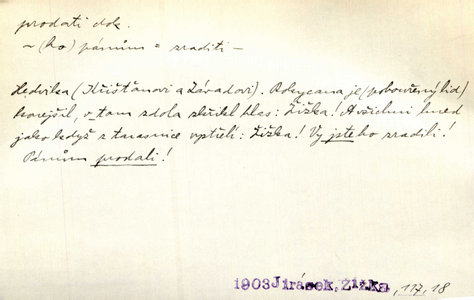 prodati dok.
~ (ho) pánům = zraditi –
Hedvika (Křišťanovi a Závadovi). Rokycana je (pobouřený lid)
konejšil, v tom zdola zlétl hlas: Žižka! A všichni hned
jako když z tarasnice vystřelí: Žižka! Vy jste ho zradili!
Pánům prodali!
1903 Jirásek, Žižka, 117, 18